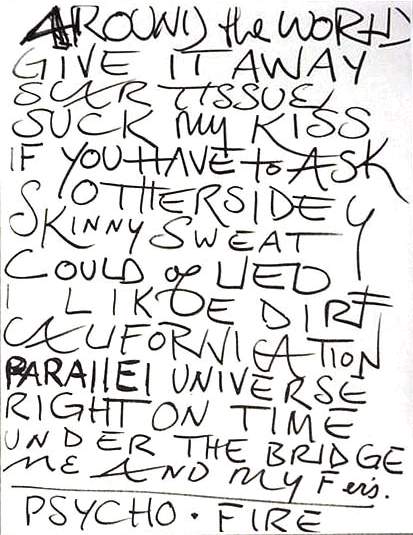 AROUND the WORLD
GIVE IT AWAY
SCAR TISSUE
SUCK My KISS
IF YOU HAVE to ASK
OTHERSIDE
SKINNY SWEATY
COULD of LIED
I LIKE DIRT
CALIFORNICATION
PARAllEl UNIVERSE
RIGHT ON TIME
UNDER THE BRIDGE
ME AND MY Fer's.
PSYCHO · FIRE